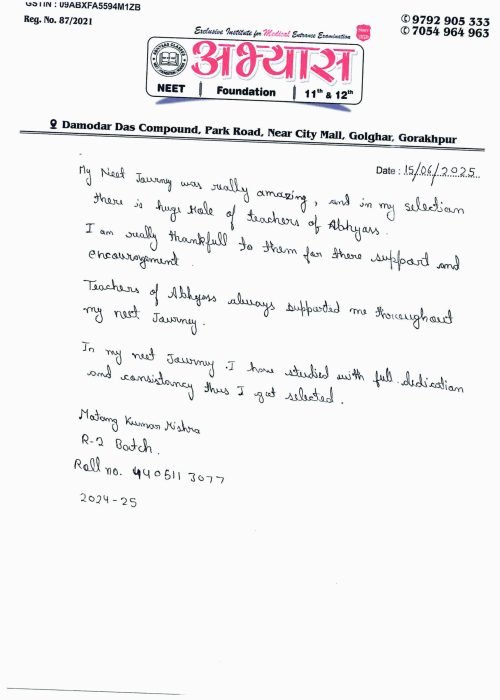 GSTIN : 09ABXFA5594M1ZB
Reg. No. 87/2021
✆ 9792 905 333
✆ 7054 964 963
Exclusive Institute for Medical Entrance Examination
अभ्यास
NEET | Foundation | 11th & 12th
Damodar Das Compound, Park Road, Near City Mall, Golghar, Gorakhpur
Date : 15/06/2025
My Neet Journey was really amazing, and in my selection
there is huge role of teachers of Abhyass.
I am really thankfull to them for there support and
encouragement.
Teachers of Abhyass always supported me thoroughout
my neet Journey.
In my neet Journey . I have studied with full dedication
and consistancy thus I got selected.
Matang Kumar Mishra
R-2 Batch.
Roll no. 4405113077
2024-25